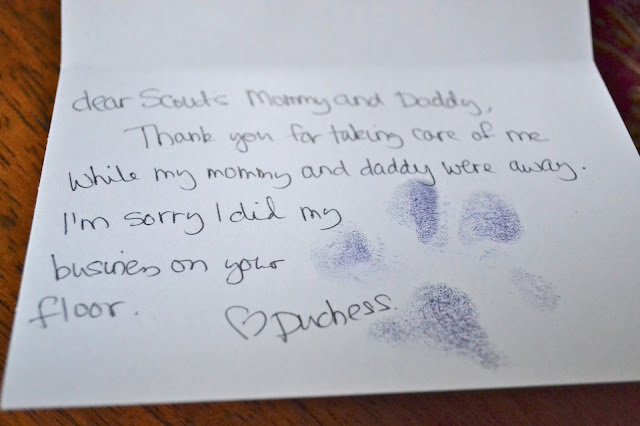 dear Scouts Mommy and Daddy,
Thank you for taking care of me
while my mommy and daddy were away.
I'm sorry I did my
business on your
floor.
♡ Duchess.